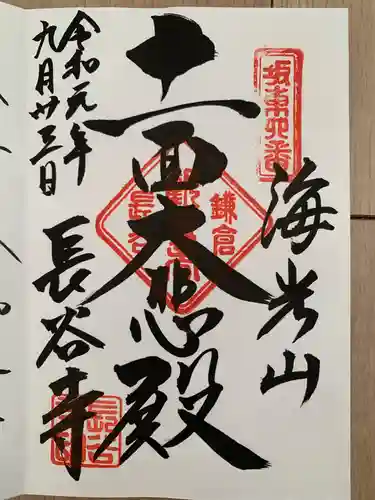 坂東四番
海光山
十一面大悲殿
鎌倉
観世音
長谷
令和元年
九月廿三日
長谷寺